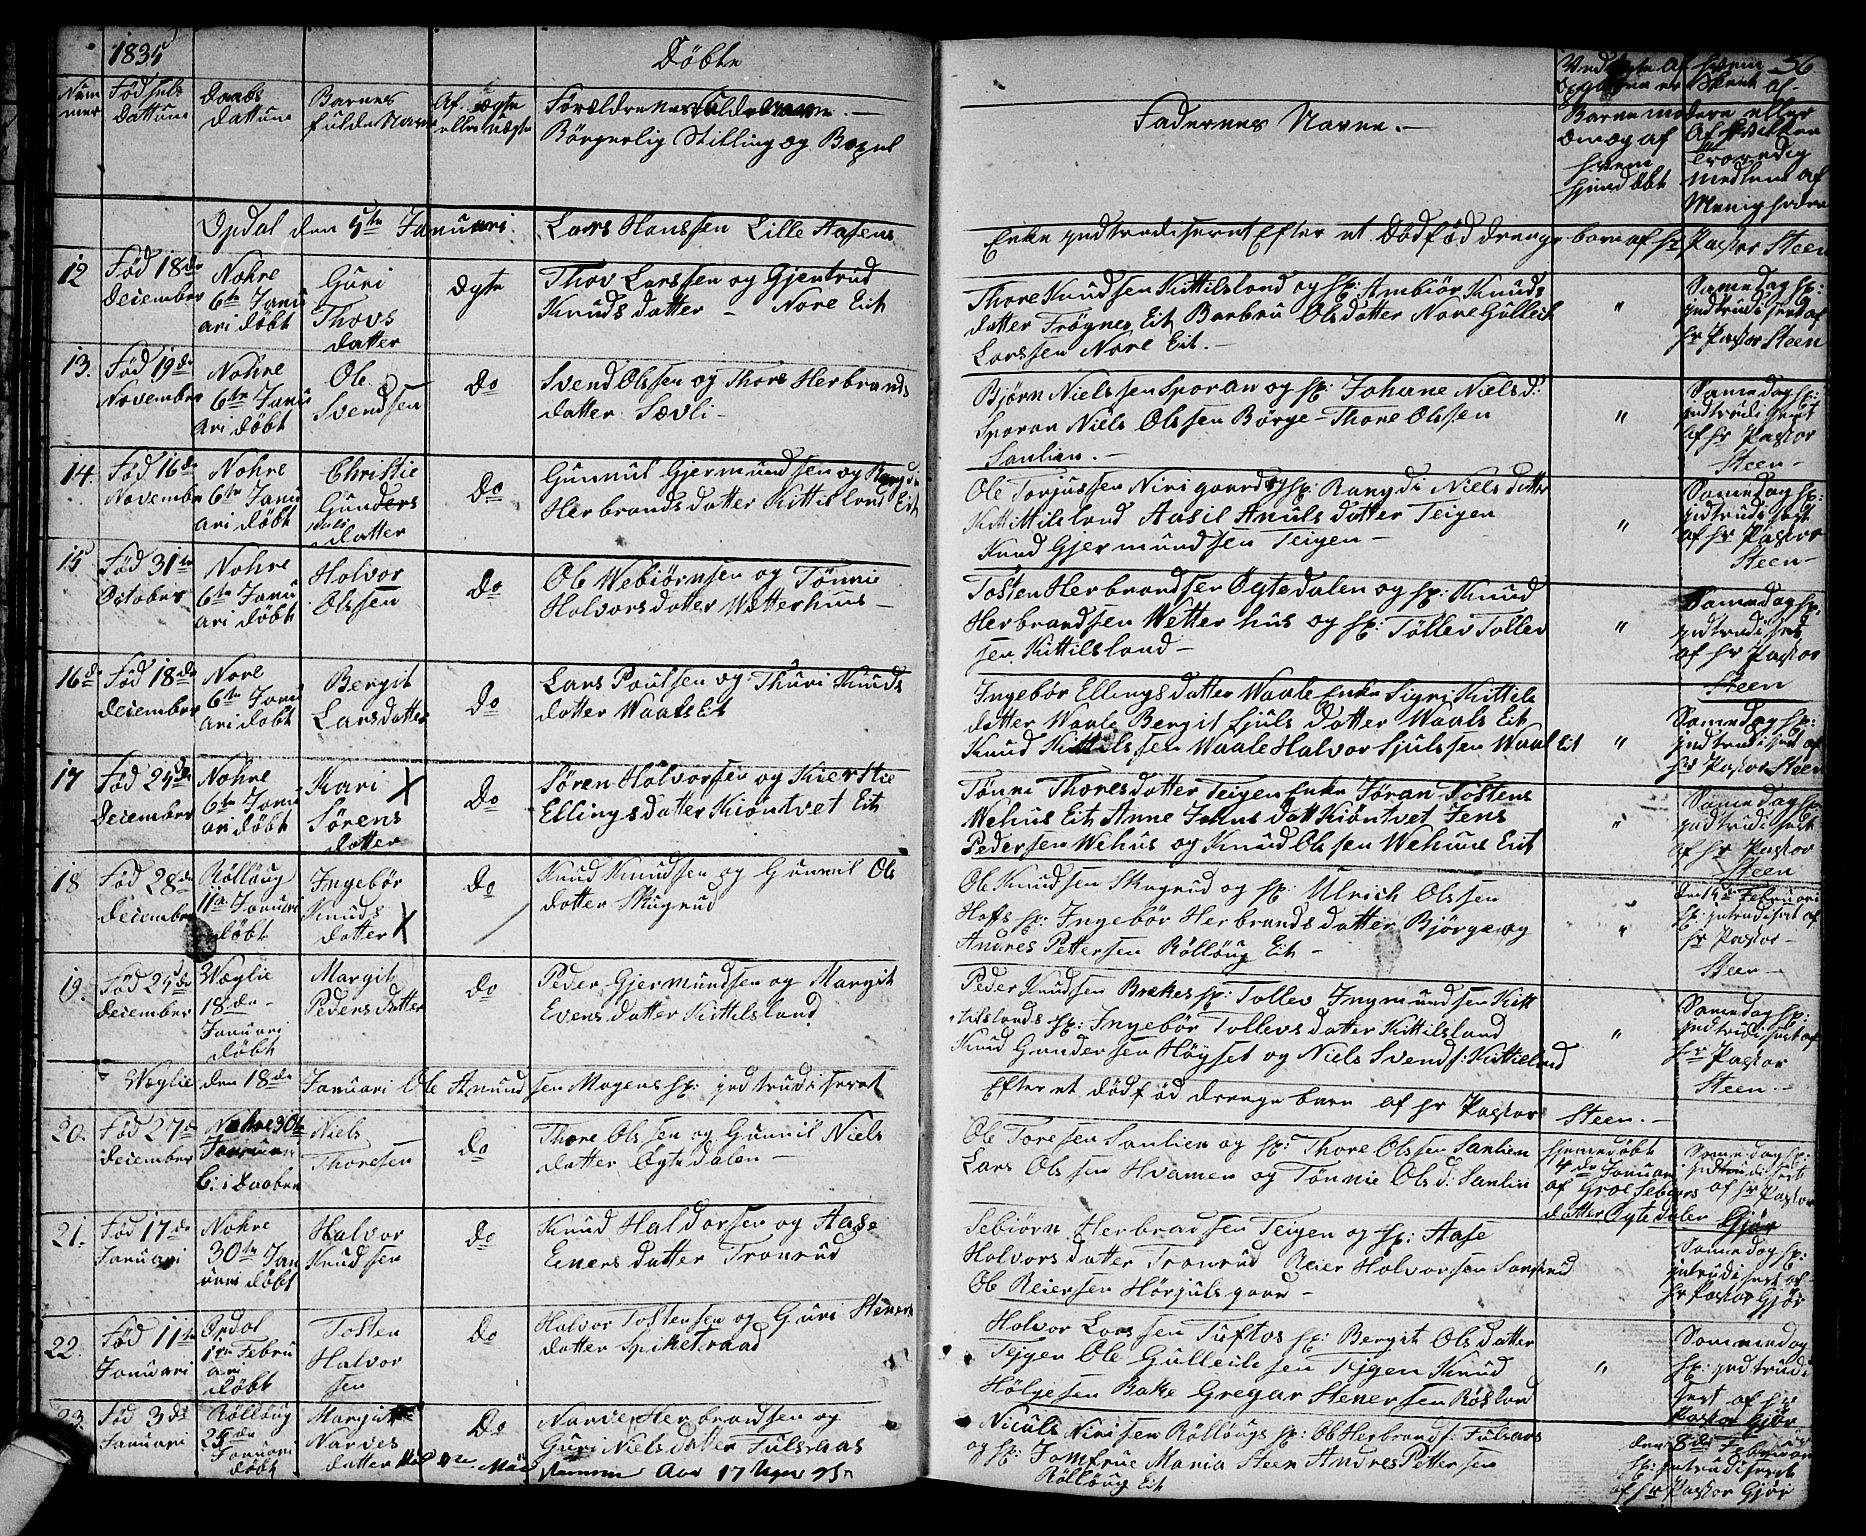 1835
Døbte
36
Num
mer
Fødsels
Dattum
Daabs
dattum
Barnes
fulde Navn
Af ægte
eller Uægte
Forældrenes fulde Navn.—
Borgerlig Stilling og Bopæl
Faddernes Navne.—
Opdal den 5te Januari.
Lars Hanssen Lille Aasens
Enke indtrediseret Efter et Dødfød drenge barn af hr Pastor Steen
12
Fød 18de
December
Nohre
6te Janu
ari døbt
Guri
Thovs
datter
Ægte
Thov Larssen og Gjertrud
Knuds datter — Nore Eit
Thore Knudsen Kittilsland og hs: Ambiør Knuds
datter Frøgnes Eit Barbru Olsdatter Nore Gulleik
Larssen Nore Eit.—
"
Samedag hs:
indtrudisert af
hr Pastor Steen
13.
Fød 19de
November
Nohre
6te Janu
ari døbt
Ole
Svendsen
Do
Svend Olssen og Thore Herbrands
datter Sævli—
Bjørn Nielssen Sporan og hs: Johane Nielsd:
Sporan Niels Olssen Børge— Thore Olssen
Sanlien.—
"
Samedag hs:
indtrudisert
af hr Pastor
Steen—
14.
Fød 16de
Novembr
Nohre
6te Janu
ari døbt
Christie
Gunders
datter
Do
Gunnul Gjermundsen og Rangdi
Herbrandsdatter Kittilsland Eit
Ole Torjussen Nirigaard og hs: Rangdi Nielsdatter
Kittilsland Aasil Anulsdatter Teigen
Knud Gjermundsen Teigen—
"
Samedag hs:
indtrudisert
af hr Pastor
Steen—
15
Fød 31te
October
Nohre
6te Janu
ari døbt
Holvor
Olssen
Do
Ole Webiørnsen og Tønnie
Halvorsdatter Wætterhuus—
Tosten Herbrandsen Øgtedalen og hs: Knud
Herbrandsen Wetterhus og hs: Tøllev Tollev
sen Kittilsland—
"
Samedag hs:
indtrudisert
af hr Pastor
Steen
16de
Fød 18de
December
Nore
6te Janu
ari døbt
Bergit
Larsdatter
Do
Lars Poulssen og Thuri Knuds
datter Waals Eit
Ingebør Ellingsdatter Waale Enke Sigri Kittils
datter Waale Bergit Sjuls datter Waals Eit
Knud Kittilssen Waale Halvor Sjulssen Waal Eit
"
Samedag hs:
indtrudisert af
hr Pastor Steen
17
Fød 25de
December
Nohre
6te Janu
ari døbt
Kari X
Sørens
datter
Do
Søren Halvorsen og Kierstie
Ellingsdatter Kiøntvet Eit
Tønni Thoresdatter Teigen Enke Jøran Tostens
Wehus Eit Anne Johns datt Kiøntvet Jens
Pedersen Wehus og Knud Olssen Wehuus Eit
"
Samedag hs:
indtrudisert
af hr Pastor
Steen
18
Fød 28de
December
Rølloug
11te Januari
døbt
Ingebør
Knuds
datter X
Do
Knud Knudsen og Gunnil Ols
datter Skugrud
Ole Knudsen Skugrud og hs: Ulrich Olssen
Hoffs hs: Ingebør Herbrandsdatter Bjørge og
Andres Pettersen Rølloug Eit—
"
den 15de Februari
hs: intrudisert af
hr Pastor—
Steen—
19.
Fød 25de
December
Wæglie
18de—
Januari
døbt
Margit
Pedersdatter
Do
Peder Gjermundsen og Margit
Evensdatter Kittilsland
Peder Knudsen Brekes hs: Tollev Ingmundsen Kitt
ilslands hs: Ingebør Tollevsdatter Kittilsland
Knud Gundersen Høyset og Niels Svends: Kittilsland
"
Samedag hs:
indtrudisert af
hr Pastor
Steen.—
Wæglie den 18de Januari Ole Amundsen Mogens hs: indtrudiseret
Efter et dødfød drenge barn af hr Pastor Steen.—
20.
Fød 27de
December
Nohre 30te
Januari
Niels
Thoresen
Do
Thore Olssen og Gunnil Niels
datter Øgtedalen—
Ole Toresen Sanlien og hs: Thore Olssen Sanlien
Lars Olssen Hvamen og Tønnie Olsd: Sanlien
hjemedøbt
4de Januari
af Groe Sebiørs
datter Øgtedalen
Samedag hs:
indtrudisert
af hr Pastor
Gjør
21.
Fød 17de
Januari
Nohre
30te Jan
uari døbt
Halvor
Knudsen
Do
Knud Haldorsen og Aase
Eners datter Tronrud
Sebiørn Herbradsen Teigen og hs: Aase
Halvorsdatter Tronrud Reier Halvorsen Sanrud
Ole Reiersen Hørjulsgaard—
Samedag hs:
intrudisert af
hr Pastor Gjør
22.
Fød 11te
Januari
Opdal
1te Febru
ari
døbt
Tosten
Halvor
sen
Do
Halvor Tostensen og Guri Steners
datter Spiketraad
Halvor Larssen Tuftos hs: Bergit Olsdatter
Tejgen Ole Gulleiksen Tejgen Knud
Hølgesen Bakke Gregar Stenersen Røsland
"
Sammedag
hs: indtrudi
sert af hr
Pastor Gjør
23.
Fød 3de
Januari
Rølloug
25de
Januari
døbt
Margit
Narves
datter
Do
Narve Herbrandsen og
Guri Nielsdatter Fulsaas
Nicols Nirisen Røllougs hs: Ole Herbrands: Fulsaas
og hs: Jomfrue Maria Steen Andres Pettersen
Rølloug Eit
den 8de Februari
hs: intrudisert
af hr Pastor Gjør